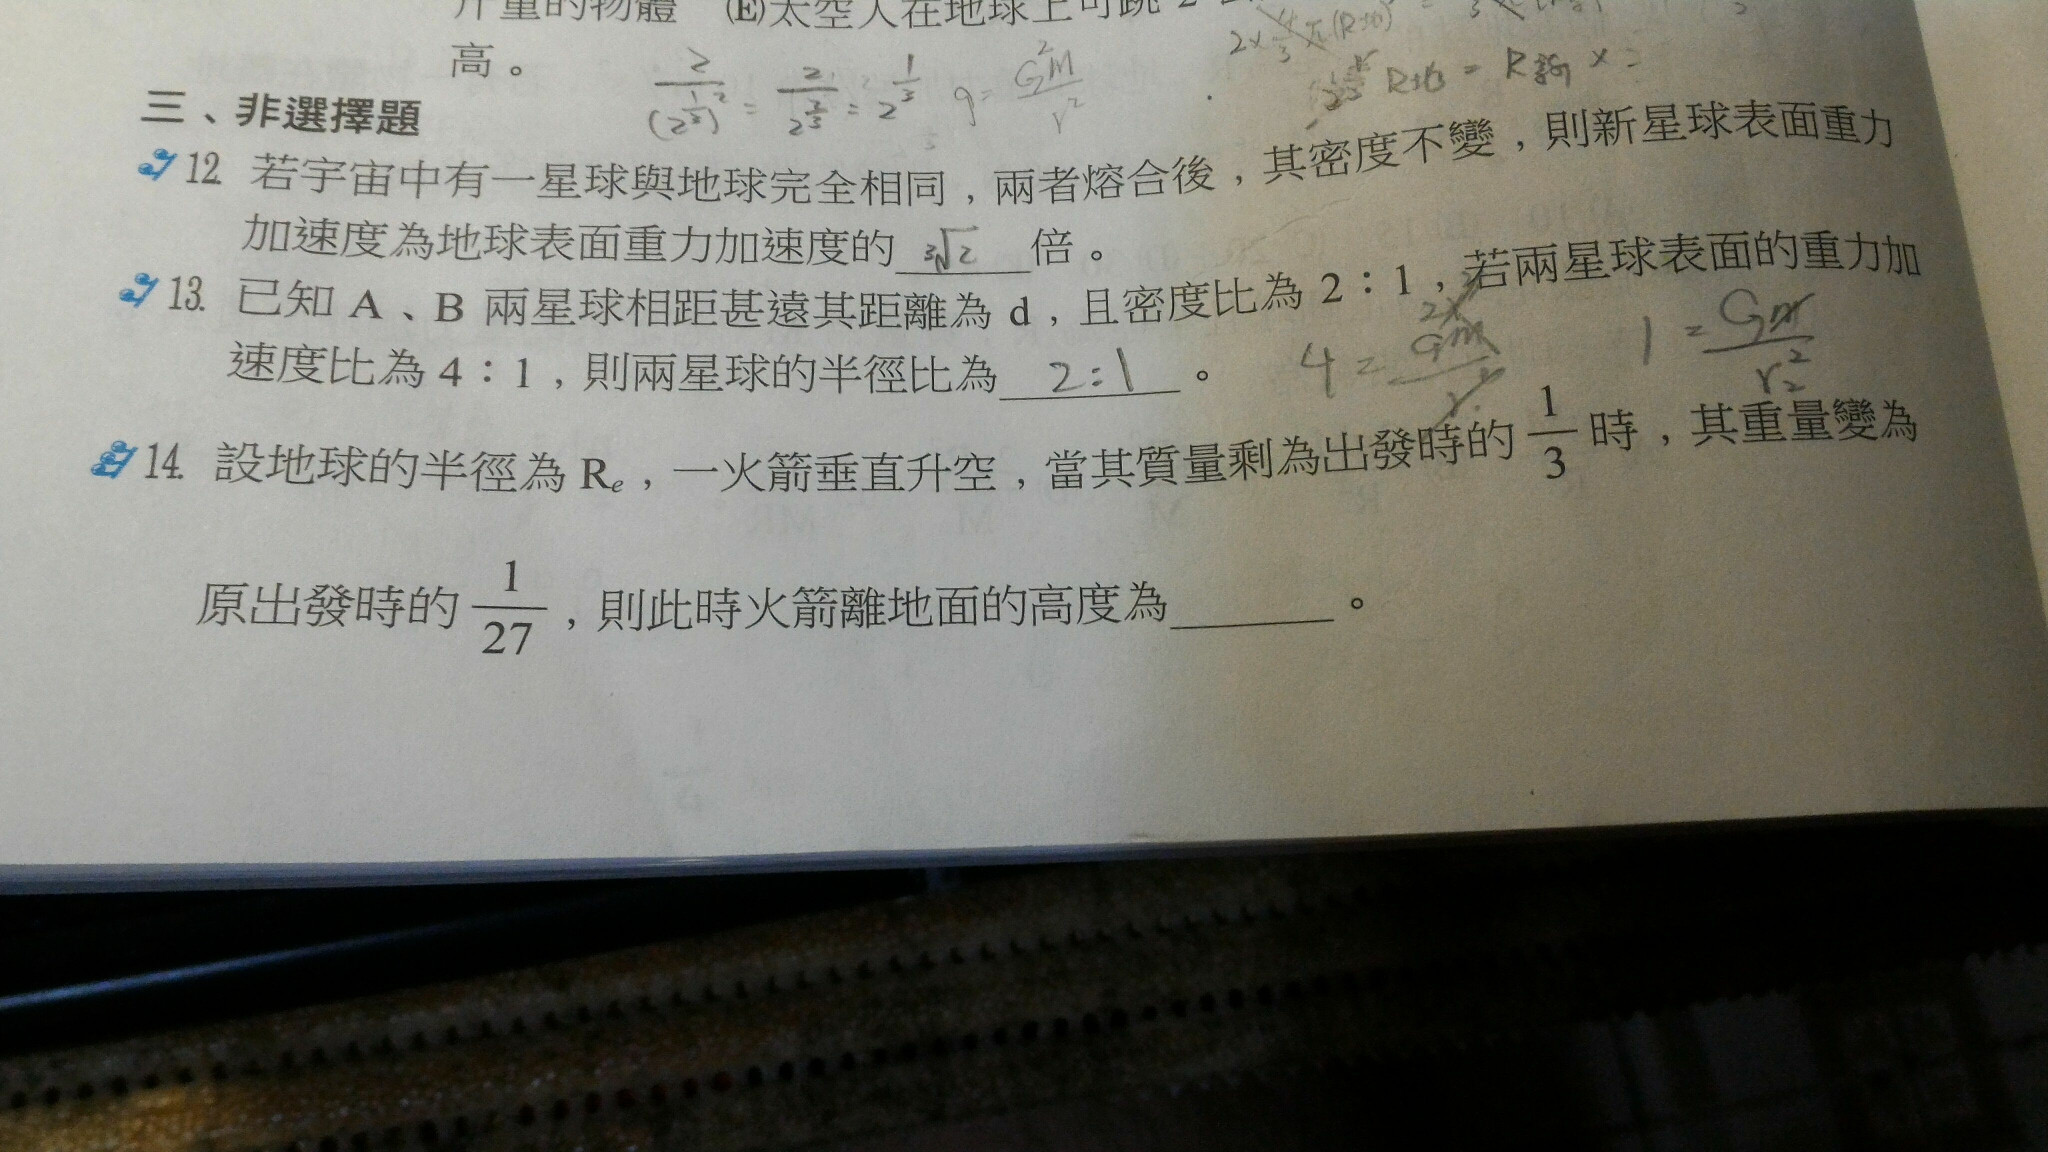 斤重的物體 (E)太空人在地球上可跳 2
高。
三、非選擇題
12. 若宇宙中有一星球與地球完全相同，兩者熔合後，其密度不變，則新星球表面重力
加速度為地球表面重力加速度的 ∛2 倍。
13. 已知 A、B 兩星球相距甚遠其距離為 d，且密度比為 2：1，若兩星球表面的重力加
速度比為 4：1，則兩星球的半徑比為 2:1 。
14. 設地球的半徑為 Re，一火箭垂直升空，當其質量剩為出發時的 1/3 時，其重量變為
原出發時的 1/27，則此時火箭離地面的高度為______。